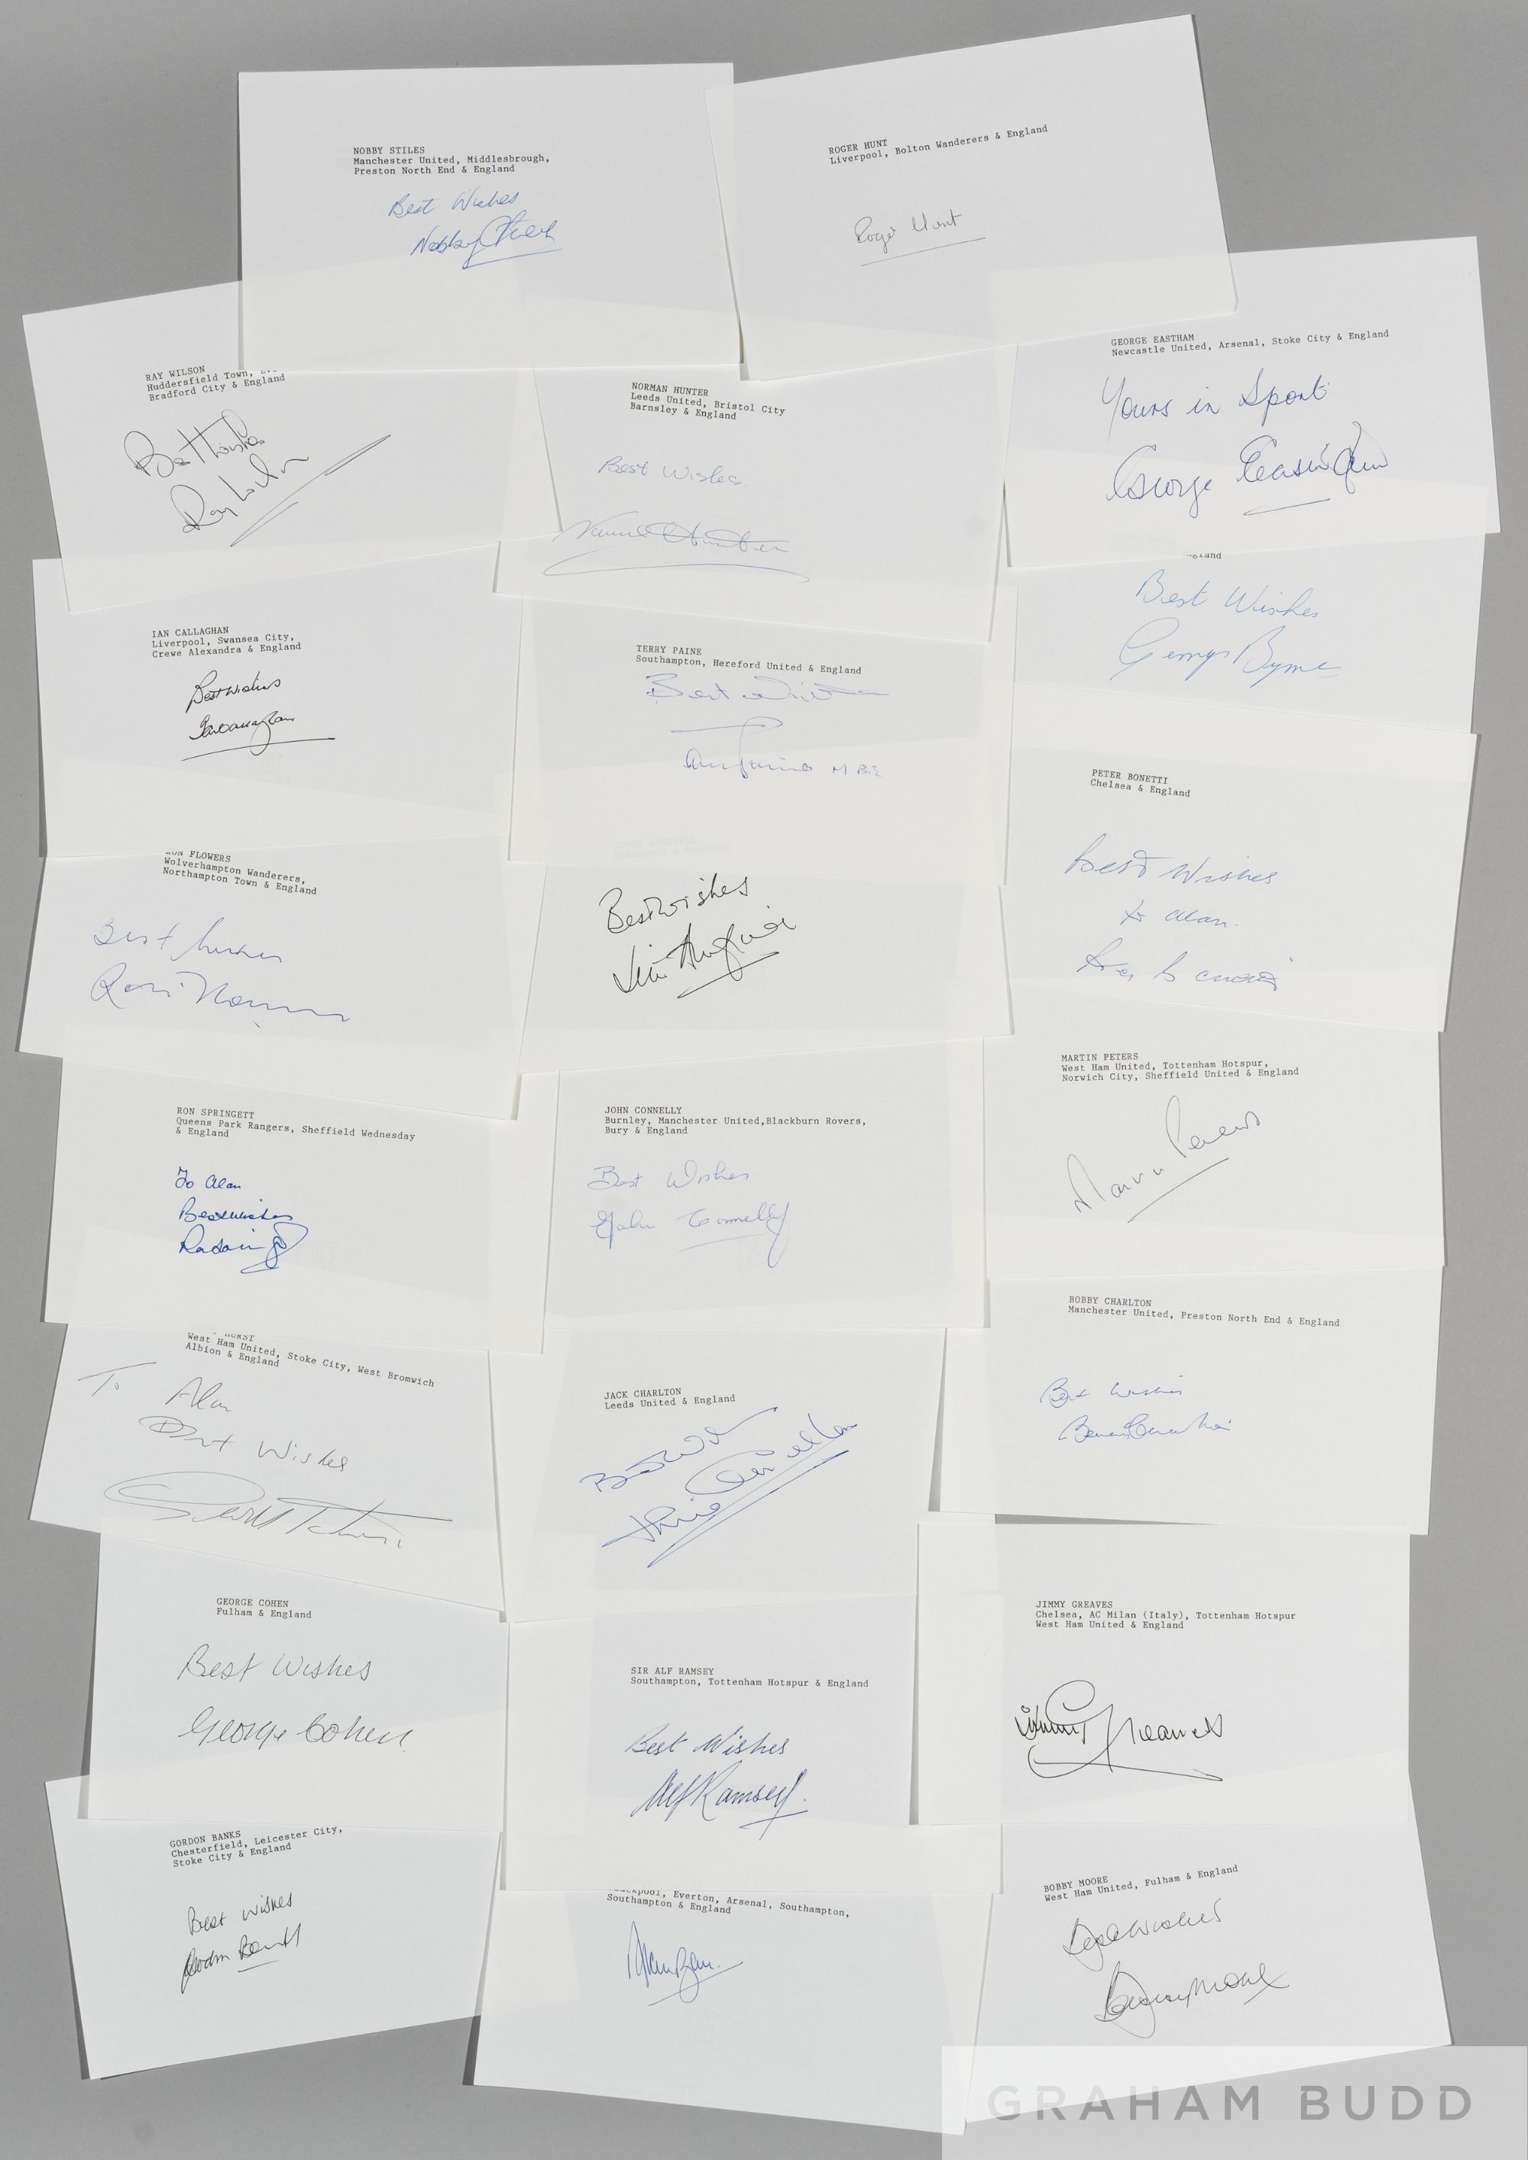 NOBBY STILES
Manchester United, Middlesbrough,
Preston North End & England
Best Wishes
Nobby Stiles
ROGER HUNT
Liverpool, Bolton Wanderers & England
Roger Hunt
RAY WILSON
Huddersfield Town,
Bradford City & England
Best Wishes
Ray Wilson
NORMAN HUNTER
Leeds United, Bristol City
Barnsley & England
Best Wishes
Norman Hunter
GEORGE EASTHAM
Newcastle United, Arsenal, Stoke City & England
Yours in Sport
George Eastham
Best Wishes
Byrne
IAN CALLAGHAN
Liverpool, Swansea City,
Crewe Alexandra & England
Best Wishes
Ian Callaghan
TERRY PAINE
Southampton, Hereford United & England
Best Wishes
Terry Paine MBE
PETER BONETTI
Chelsea & England
Best Wishes
to Alan.
Peter Bonetti
RON FLOWERS
Wolverhampton Wanderers,
Northampton Town & England
Best Wishes
Ron Flowers
Best Wishes
Jim Armfield
MARTIN PETERS
West Ham United, Tottenham Hotspur,
Norwich City, Sheffield United & England
Martin Peters
RON SPRINGETT
Queens Park Rangers, Sheffield Wednesday
& England
To Alan
Best Wishes
JOHN CONNELLY
Burnley, Manchester United,Blackburn Rovers,
Bury & England
Best Wishes
John Connelly
BOBBY CHARLTON
Manchester United, Preston North End & England
Best Wishes
Bobby Charlton
HURST
West Ham United, Stoke City, West Bromwich
Albion & England
To Alan
Best Wishes
Geoff Hurst
JACK CHARLTON
Leeds United & England
Best Wishes
Jack Charlton
GEORGE COHEN
Fulham & England
Best Wishes
George Cohen
SIR ALF RAMSEY
Southampton, Tottenham Hotspur & England
Best Wishes
Alf Ramsey.
JIMMY GREAVES
Chelsea, AC Milan (Italy), Tottenham Hotspur
West Ham United & England
Jimmy Greaves
GORDON BANKS
Chesterfield, Leicester City,
Stoke City & England
Best Wishes
Gordon Banks
Blackpool, Everton, Arsenal, Southampton,
Southampton & England
Alan Ball.
BOBBY MOORE
West Ham United, Fulham & England
Best Wishes
Bobby Moore
GRAHAM BUDD